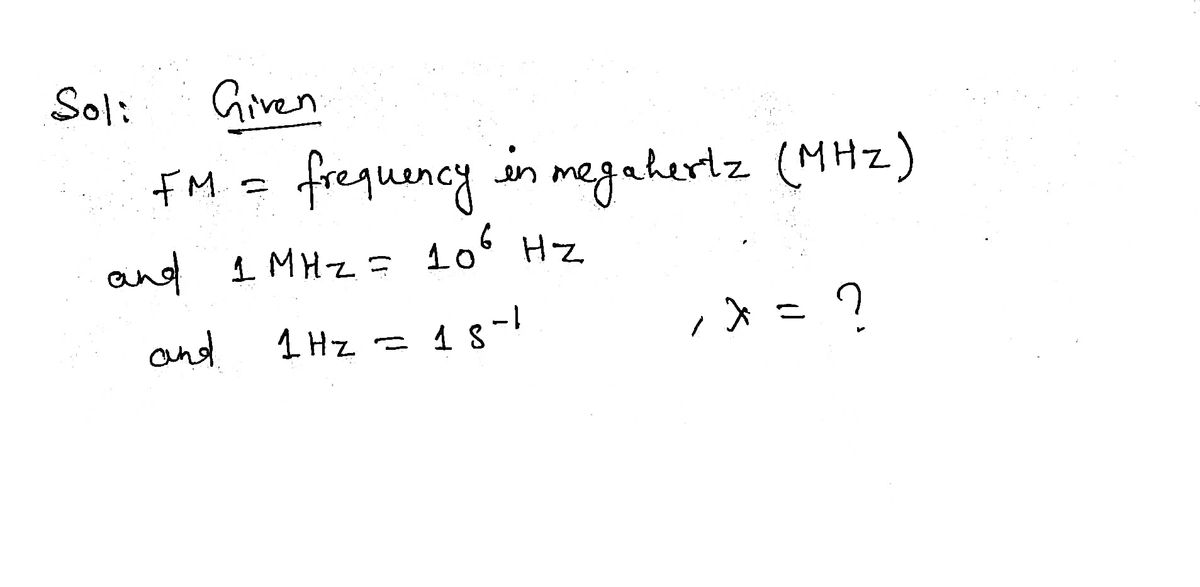 Sol: Given
FM = frequency in megahertz (MHz)
and 1 MHz = 10⁶ Hz
and 1 Hz = 1 s⁻¹ , λ = ?